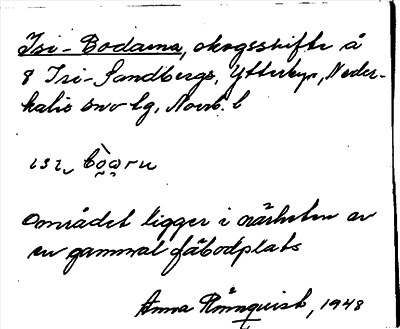 Isi-Bodarna, skogsskifte å
8 Isi-Sandbergs, Ytterbyn, Neder-
kalix snv lg, Norrb. l
Området ligger i närheten av
en gammal fäbodplats
Anna Rönnquist, 1948